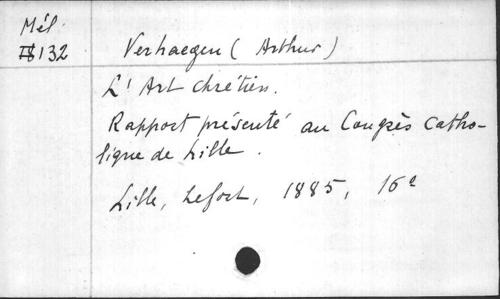 Mél.
II 132
Verhaegen (Arthur)
L'Art chrétien.
Rapport présenté au Congrès catho-
lique de Lille.
Lille, Lefort, 1885, 16º